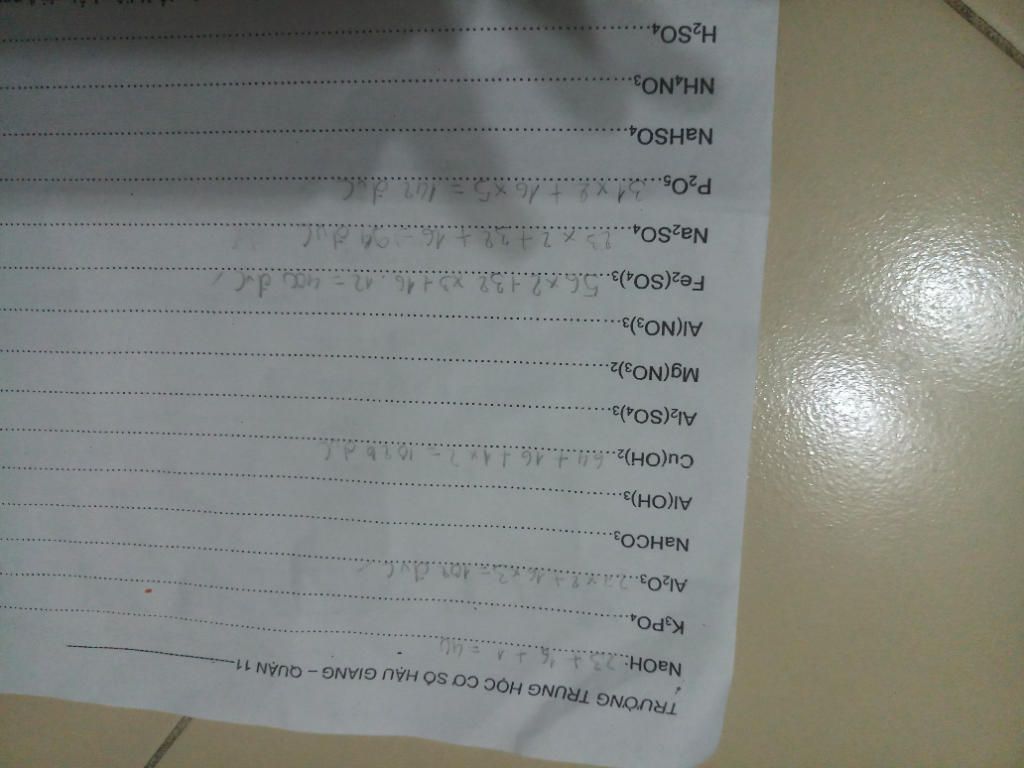 TRƯỜNG TRUNG HỌC CƠ SỞ HẬU GIANG – QUẬN 11
NaOH: 23 + 16 + 1 = 44
K₃PO₄
Al₂O₃ 27 x 2 + 16 x 3 = 102 đvC
NaHCO₃
Al(OH)₃
Cu(OH)₂ 64 + 16 + 1 x 2 =
Al₂(SO₄)₃
Mg(NO₃)₂
Al(NO₃)₃
Fe₂(SO₄)₃ 56 x 2 + 32 x 3 + 16 . 12 = 400 đvC
Na₂SO₄ 23 x 2 + 32 + 16 = 94 đvC
P₂O₅ 31 x 2 + 16 x 5 = 142 đvC
NaHSO₄
NH₄NO₃
H₂SO₄